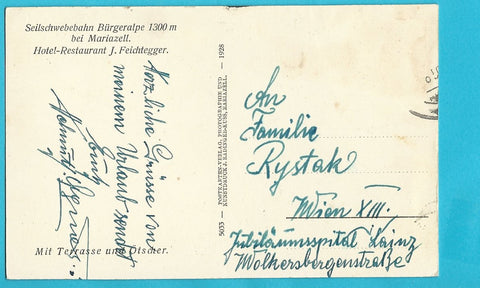 Seilschwebebahn Bürgeralpe 1300 m
bei Mariazell.
Hotel-Restaurant J. Feichtegger.
Herzliche Grüsse von
meinem Urlaub sendet
Mit Terrasse und Ötscher.
5033 — POSTKARTEN-VERLAG, PHOTOGRAPHIE UND — 1928
KUNSTDRUCK J. KUSS, MARIAZELL.
An
Familie
Rystak
Wien XIII.
Jubiläumsspital Lainz
Wolkersbergenstraße